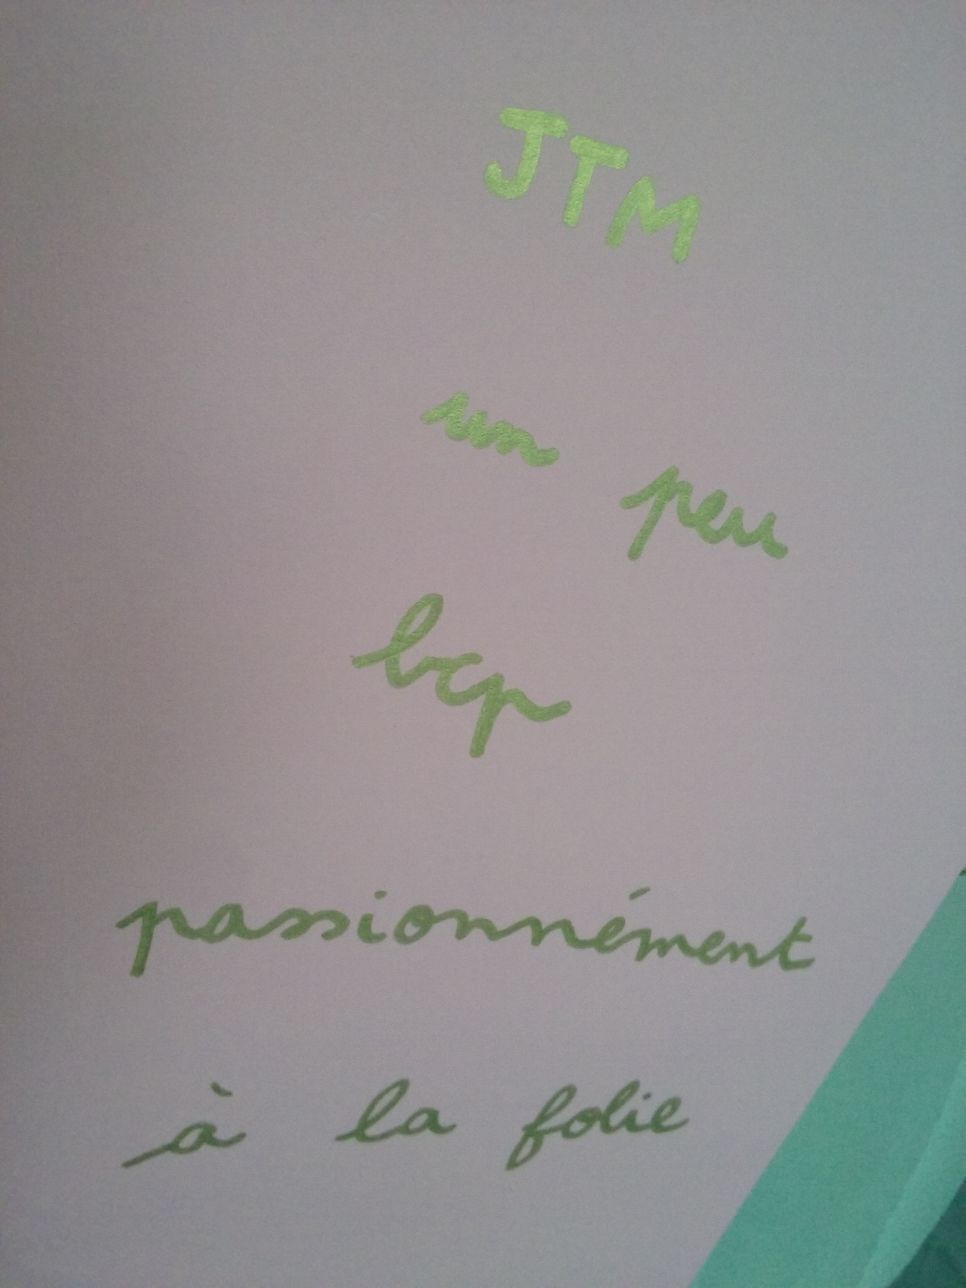 JTM
un peu
bcp
passionnément
à la folie